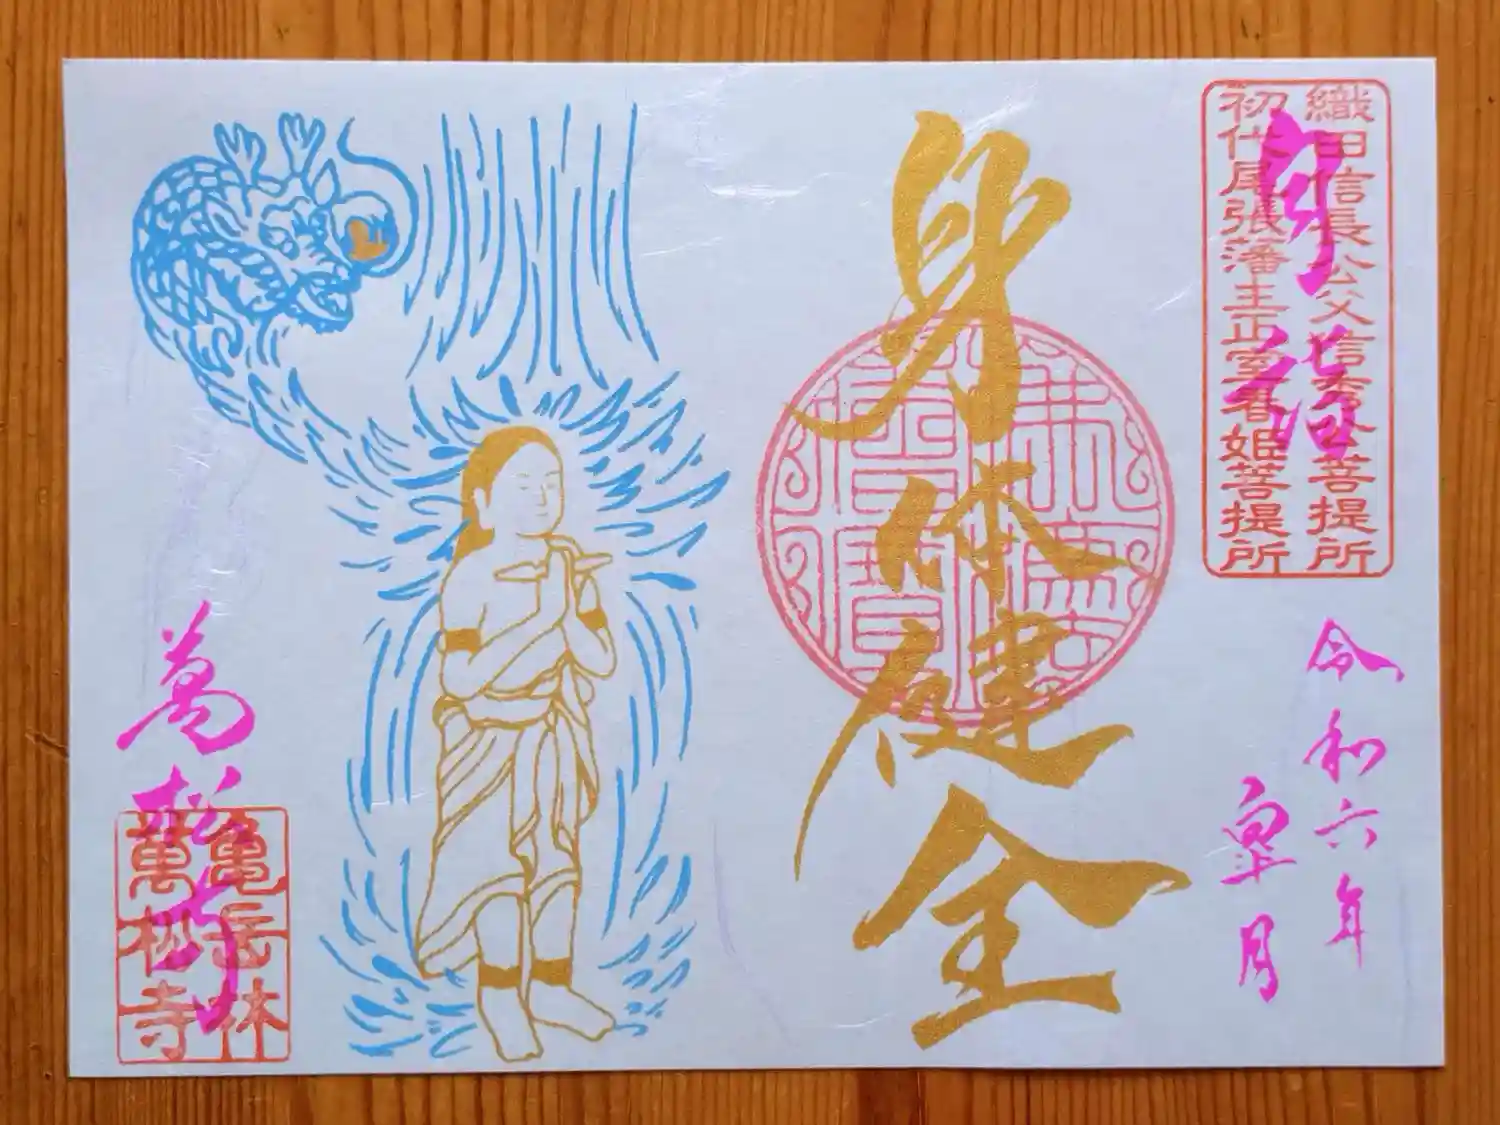 織田信長公父信秀公菩提所
初代尾張藩主正室春姫菩提所
令和六年
皐月
身体健全
萬松寺
龜岳林
萬松寺